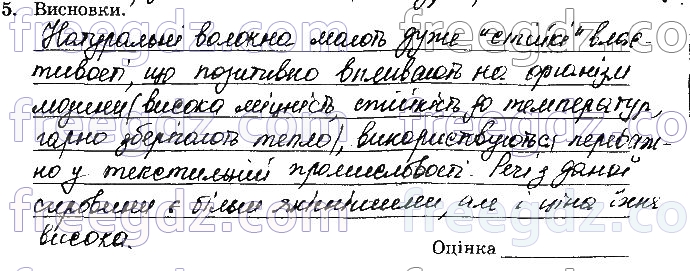 5. Висновки.
Натуральні волокна мають дуже "стійкі" влас-
тивості, що позитивно впливають на організм
людини (висока міцність, стійкість до температур,
гарно зберігають тепло), використовуються переваж-
но у текстильній промисловості. Речі з даної
сировини є більш якіснішими, але і ціна їхня
висока.
Оцінка
freegdz.com